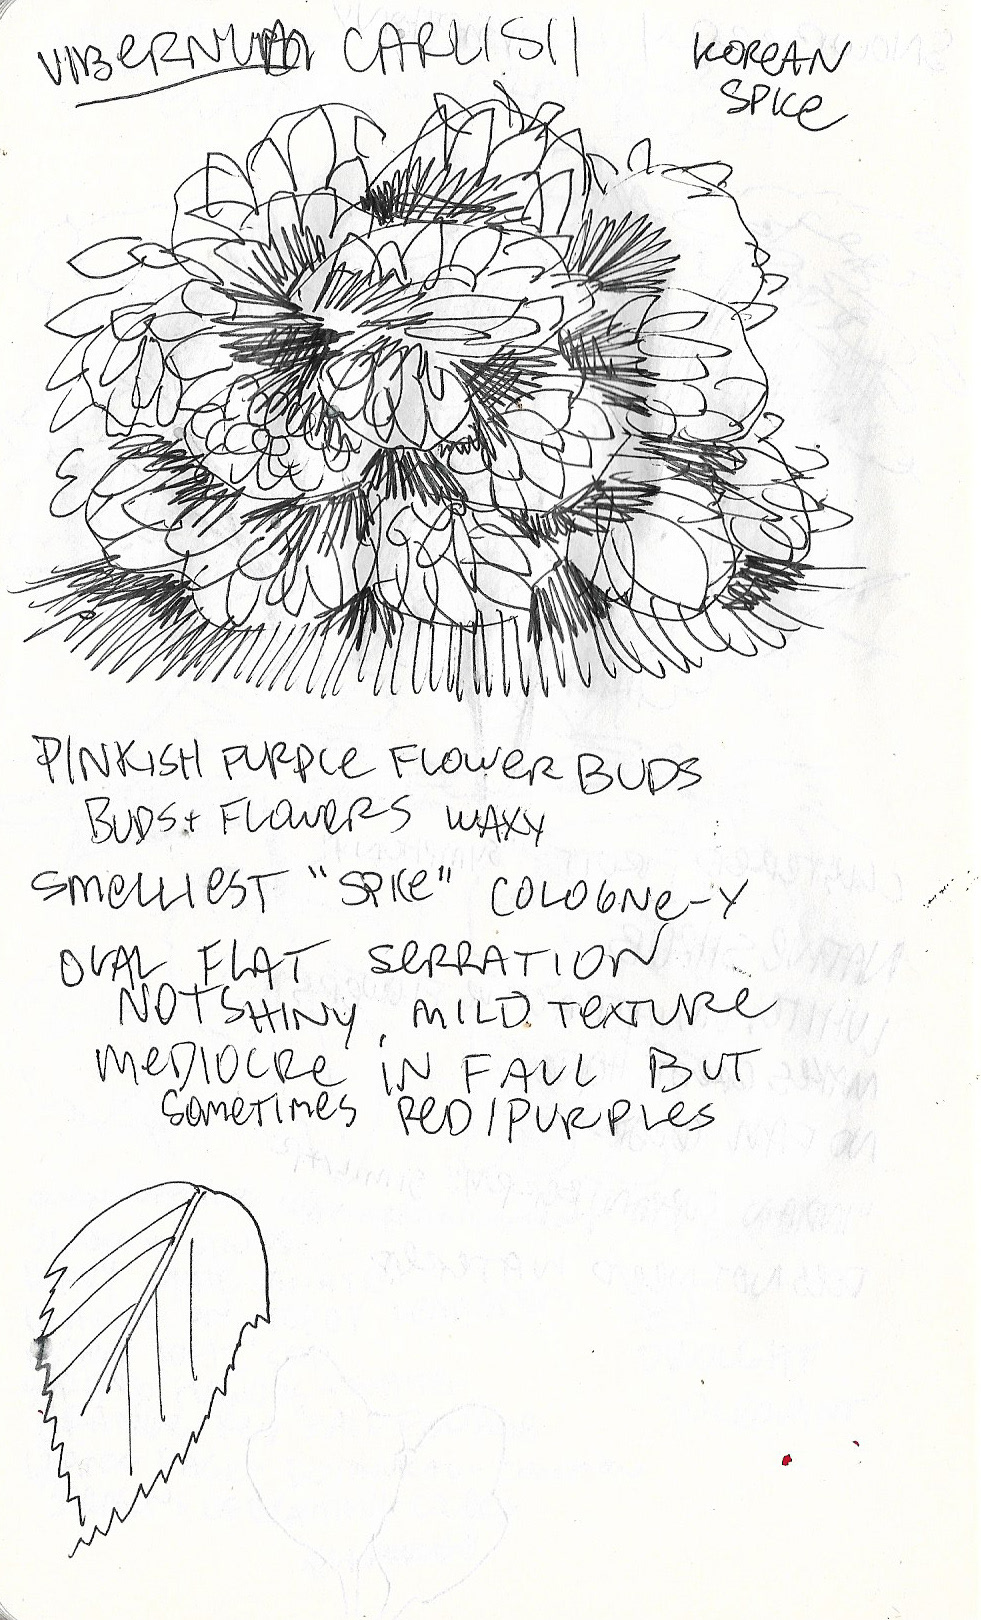 VIBERNUM CARLISII
KOREAN
SPICE
PINKISH PURPLE FLOWER BUDS
BUDS + FLOWERS WAXY
SMELLIEST "SPICE" COLOGNE-Y
OVAL FLAT SERRATION
NOT SHINY, MILD TEXTURE
MEDIOCRE IN FALL BUT
SOMETIMES RED/PURPLES